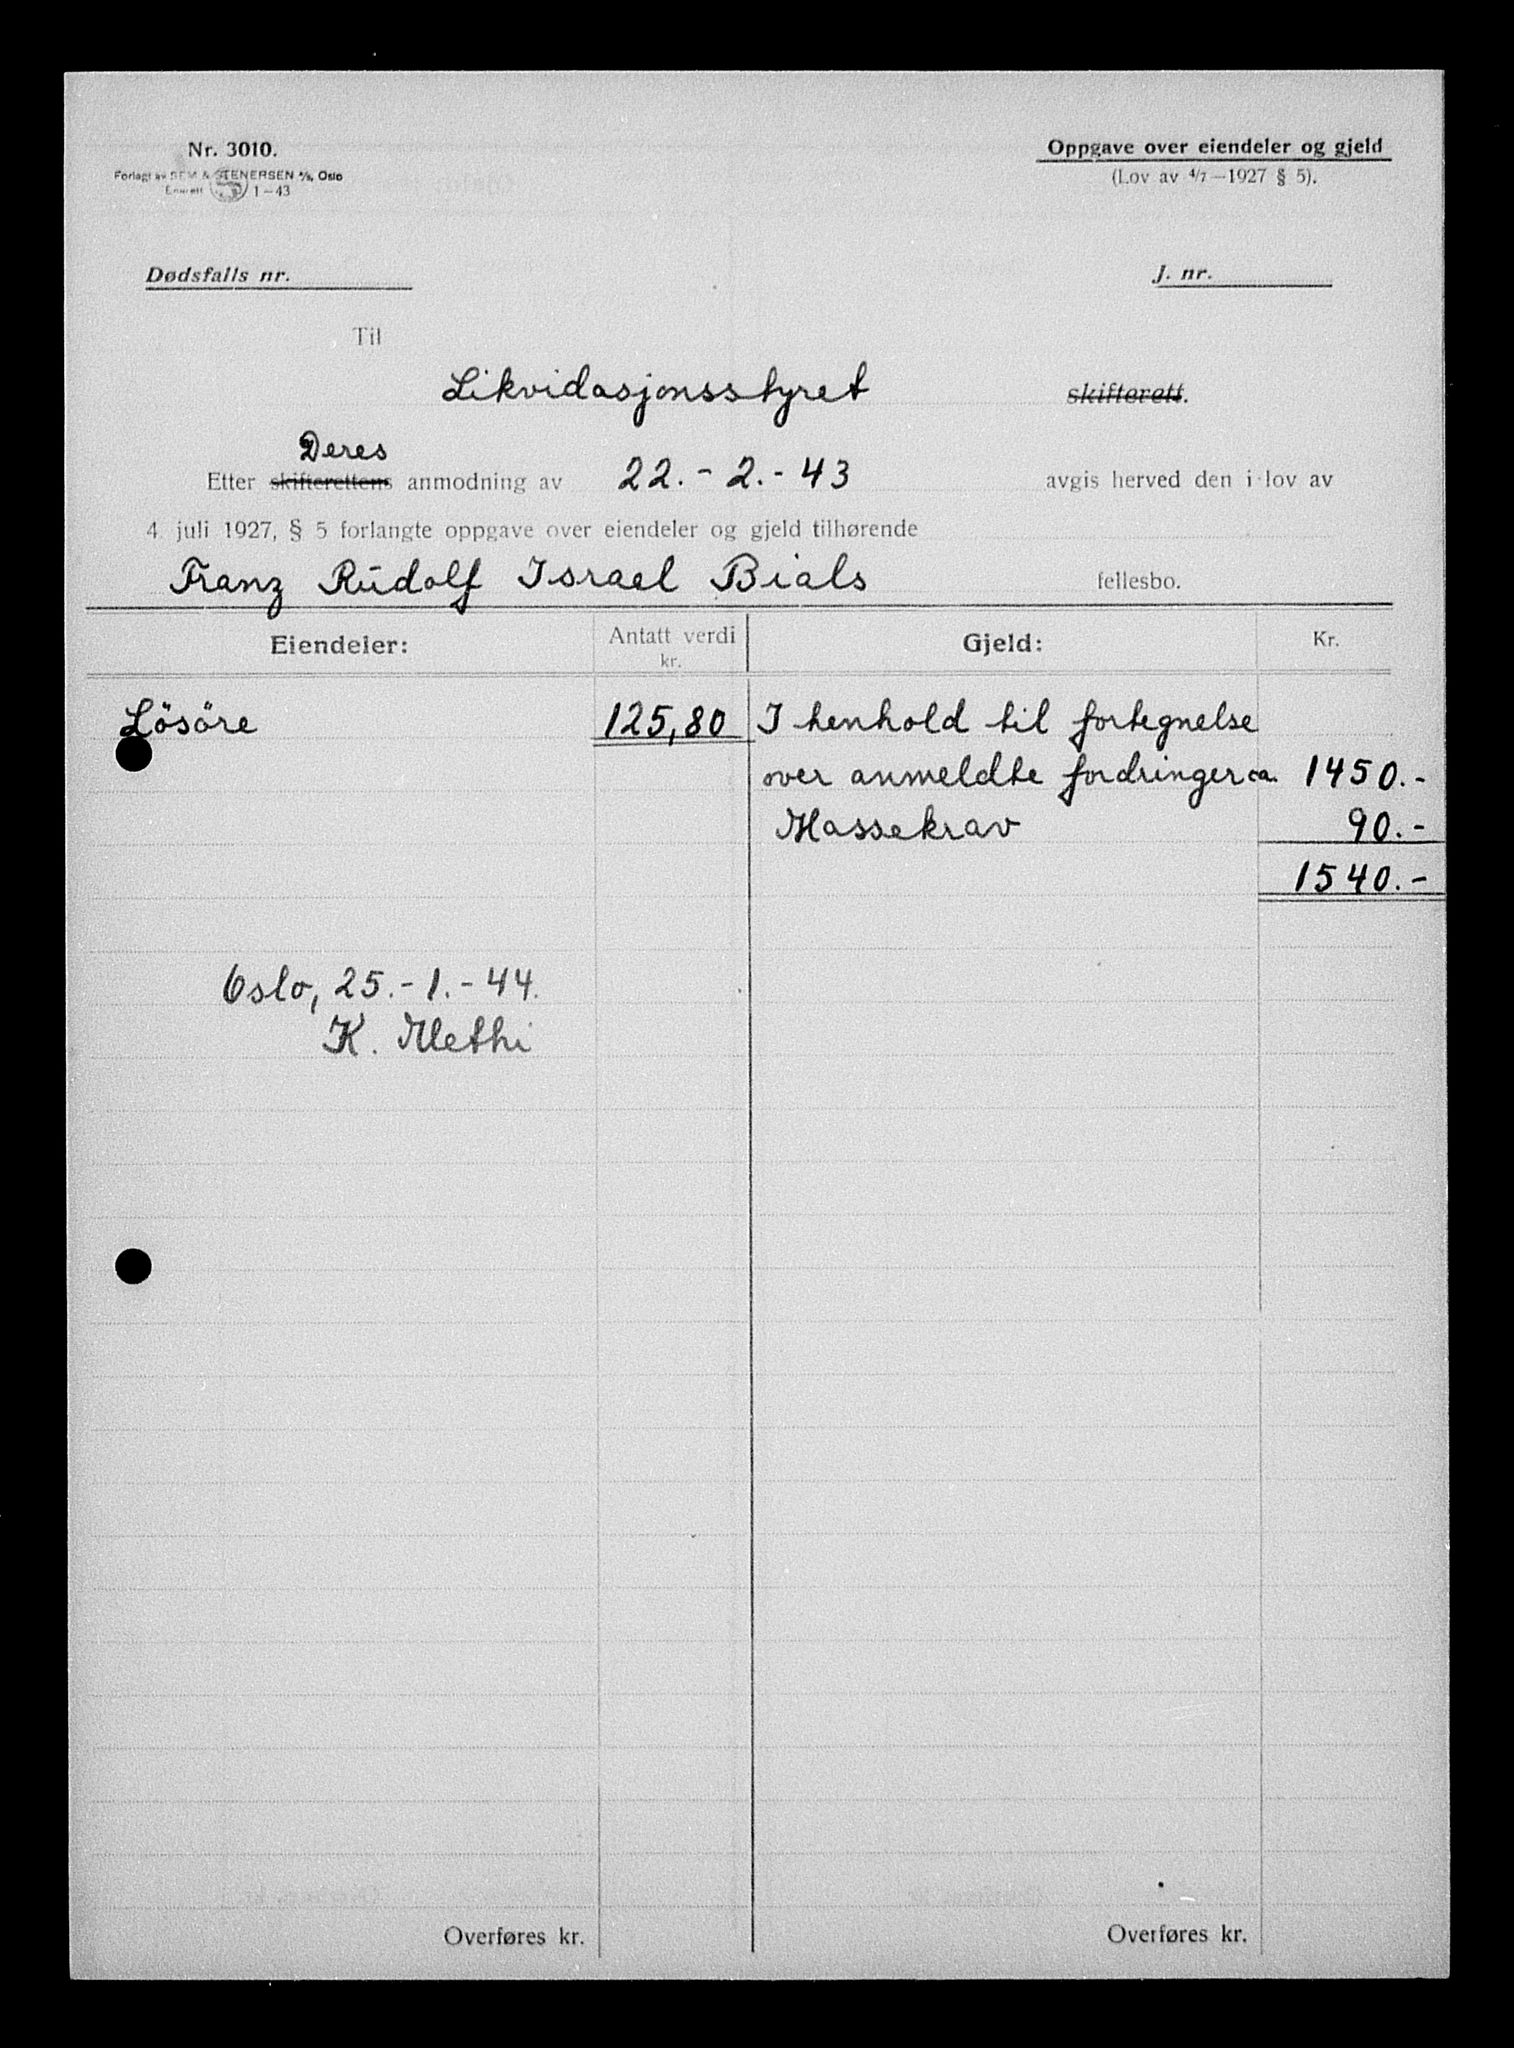 Nr. 3010.
Forlagt av SEM & STENERSEN A/S, Oslo
Enerett 1-43
Oppgave over eiendeler og gjeld
(Lov av 4/7-1927 § 5).
Dødsfalls nr.
J. nr.
Til
Likvidasjonsstyret skifterett.
Deres
Etter skifterettens anmodning av 22.-2.-43 avgis herved den i lov av
4. juli 1927, § 5 forlangte oppgave over eiendeler og gjeld tilhørende
Franz Rudolf Israel Bials fellesbo.
Eiendeler: Antatt verdi kr. Gjeld: Kr.
Lösöre 125,80 I henhold til fortegnelse
over anmeldte fordringer ca. 1450.-
Massekrav 90.-
1540.-
Oslo, 25.-1.-44.
K. Methi
Overføres kr. Overføres kr.